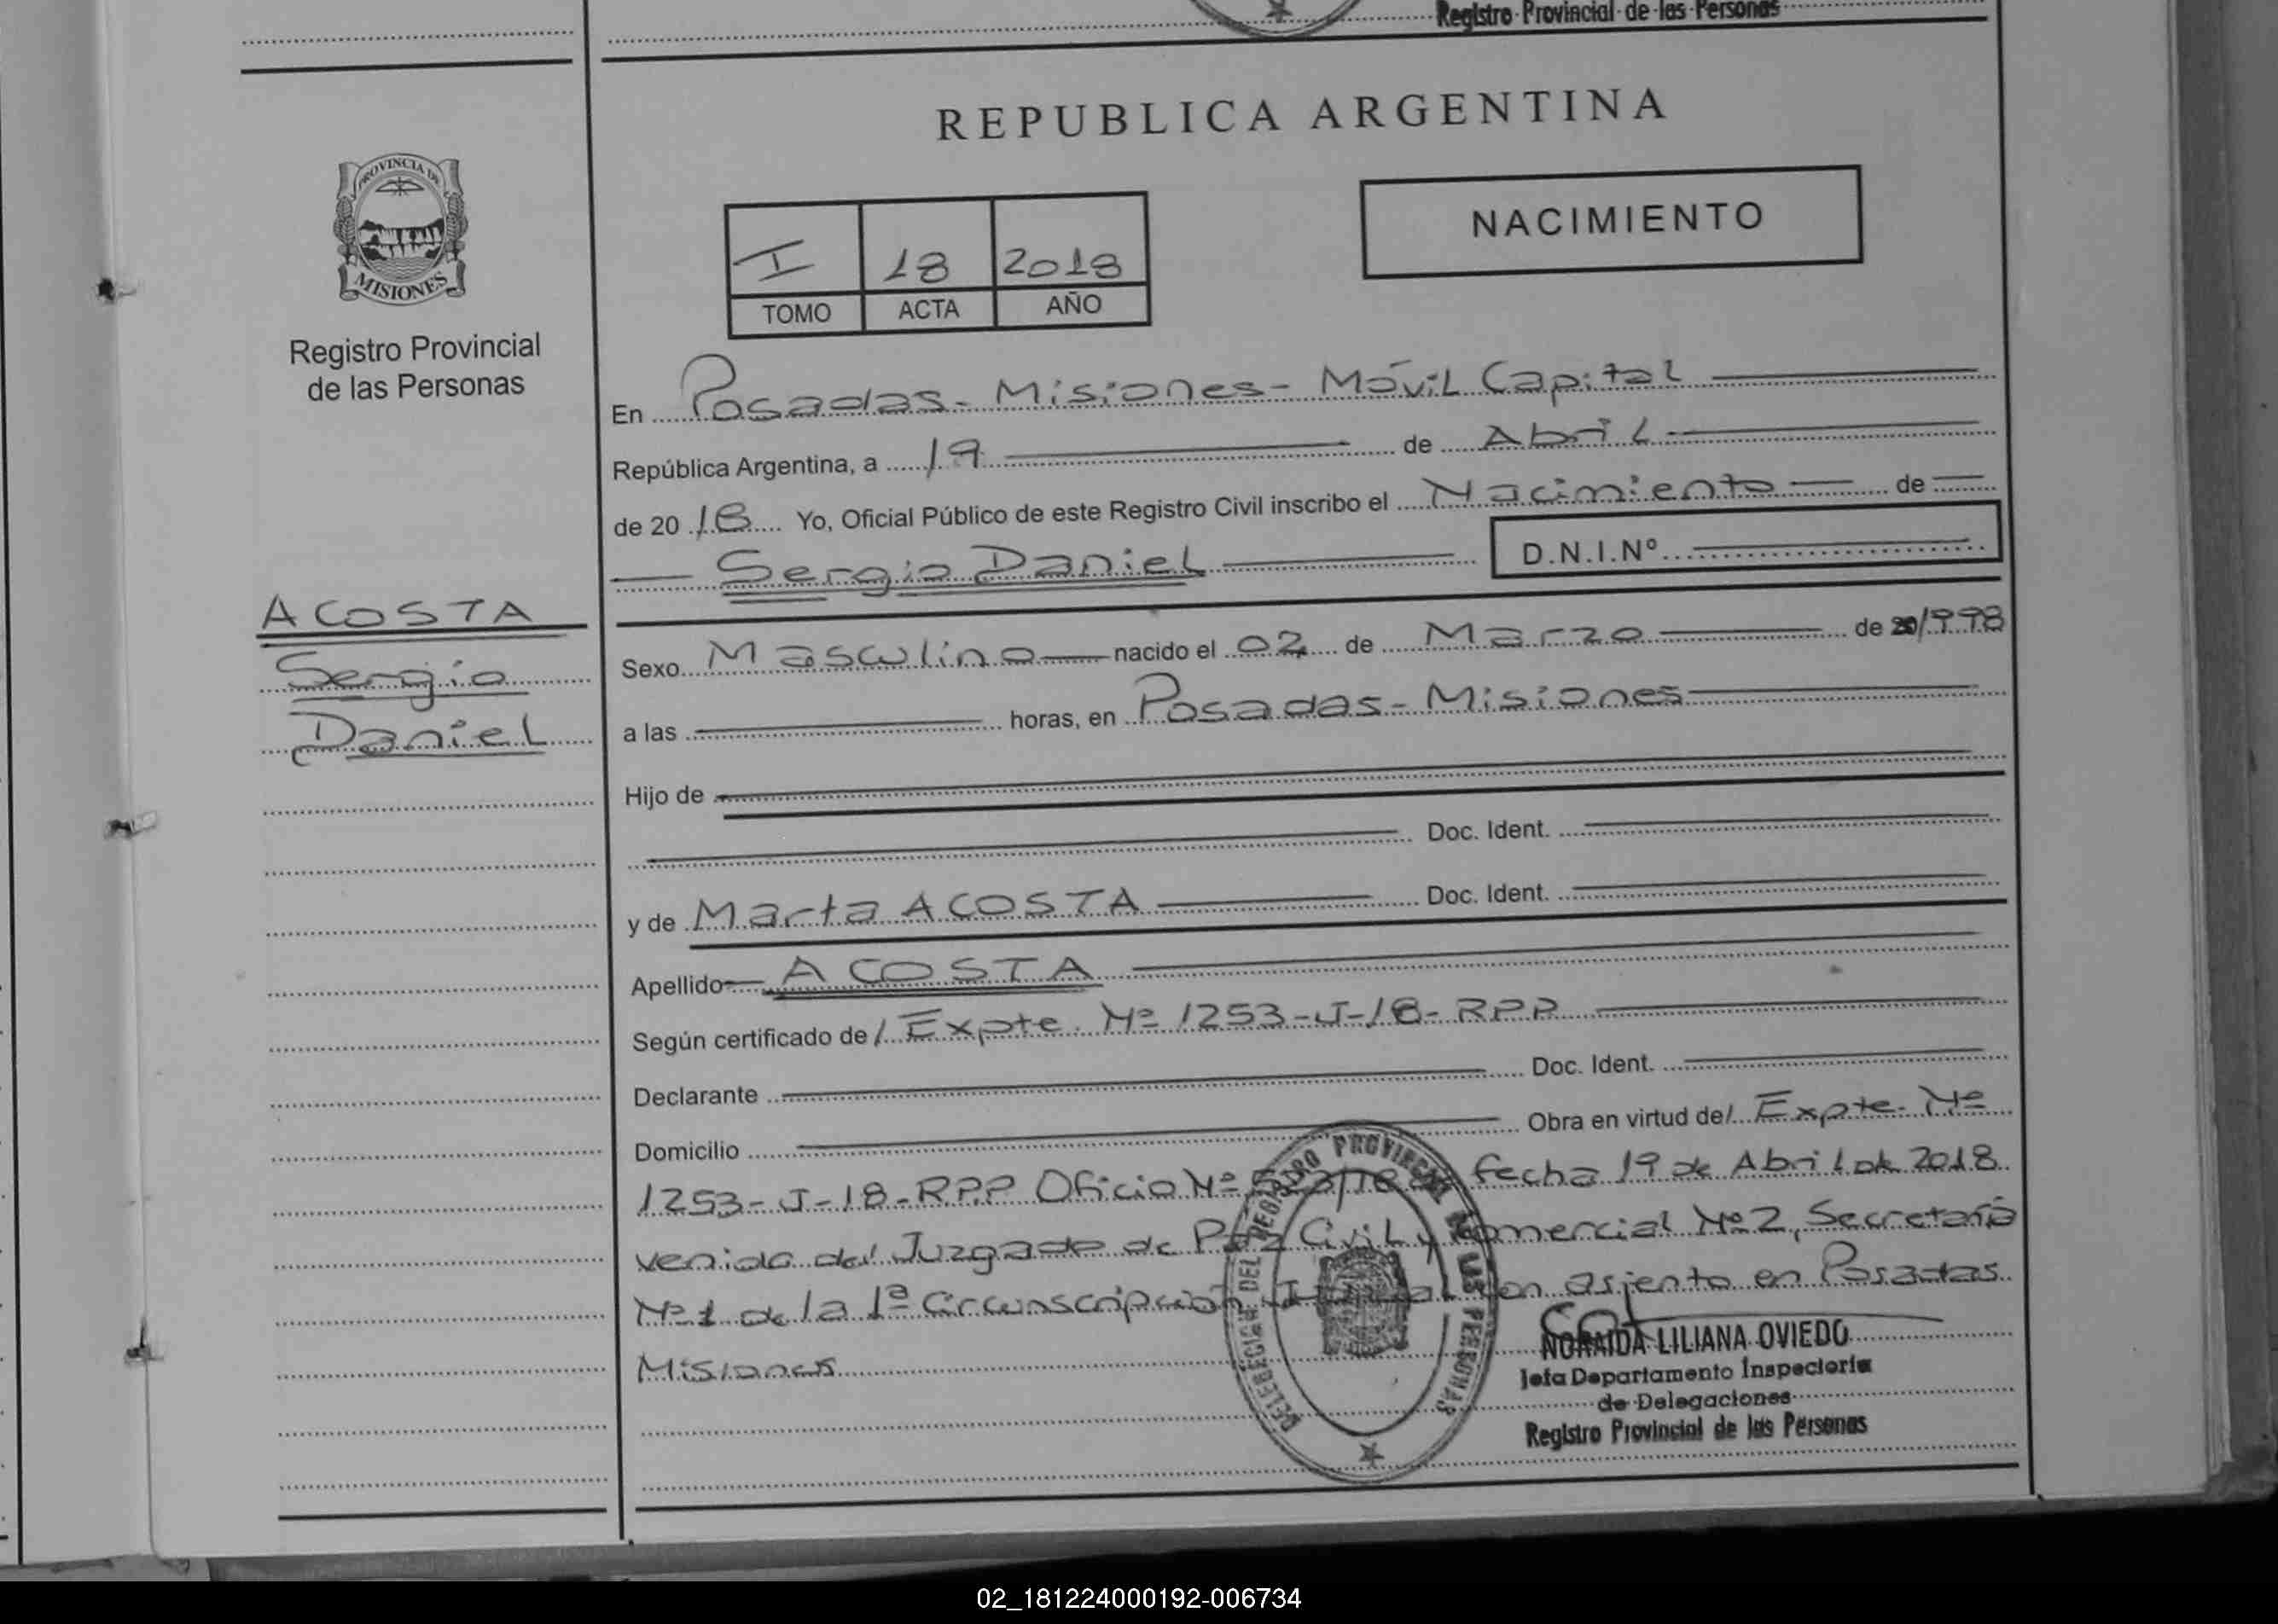 Registro Provincial de las Personas
REPUBLICA ARGENTINA
PROVINCIA DE
MISIONES
Registro Provincial
de las Personas
I 18 2018
TOMO ACTA AÑO
NACIMIENTO
En Posadas - Misiones - Móvil Capital
República Argentina, a 19 de Abril
de 20 18 Yo, Oficial Público de este Registro Civil inscribo el Nacimiento de
Sergio Daniel D.N.I.Nº
ACOSTA
Sergio
Daniel
Sexo Masculino nacido el 02 de Marzo de 1998
a las horas, en Posadas - Misiones
Hijo de
Doc. Ident.
y de Marta ACOSTA Doc. Ident.
Apellido ACOSTA
Según certificado de / Expte. Nº 1253-J-18-RPP
Declarante Doc. Ident.
Domicilio Obra en virtud de/ Expte. Nº
1253-J-18-RPP Oficio Nº fecha 19 de Abril de 2018
venido del Juzgado de Paz Civil y Comercial Nº 2, Secretaría
Nº 1 de la 1ª Circunscripción con asiento en Posadas
Misiones
DELEGACION DEL REGISTRO PROVINCIAL DE LAS PERSONAS
NORAIDA LILIANA OVIEDO
Jefa Departamento Inspectoría
de Delegaciones
Registro Provincial de las Personas
02_181224000192-006734